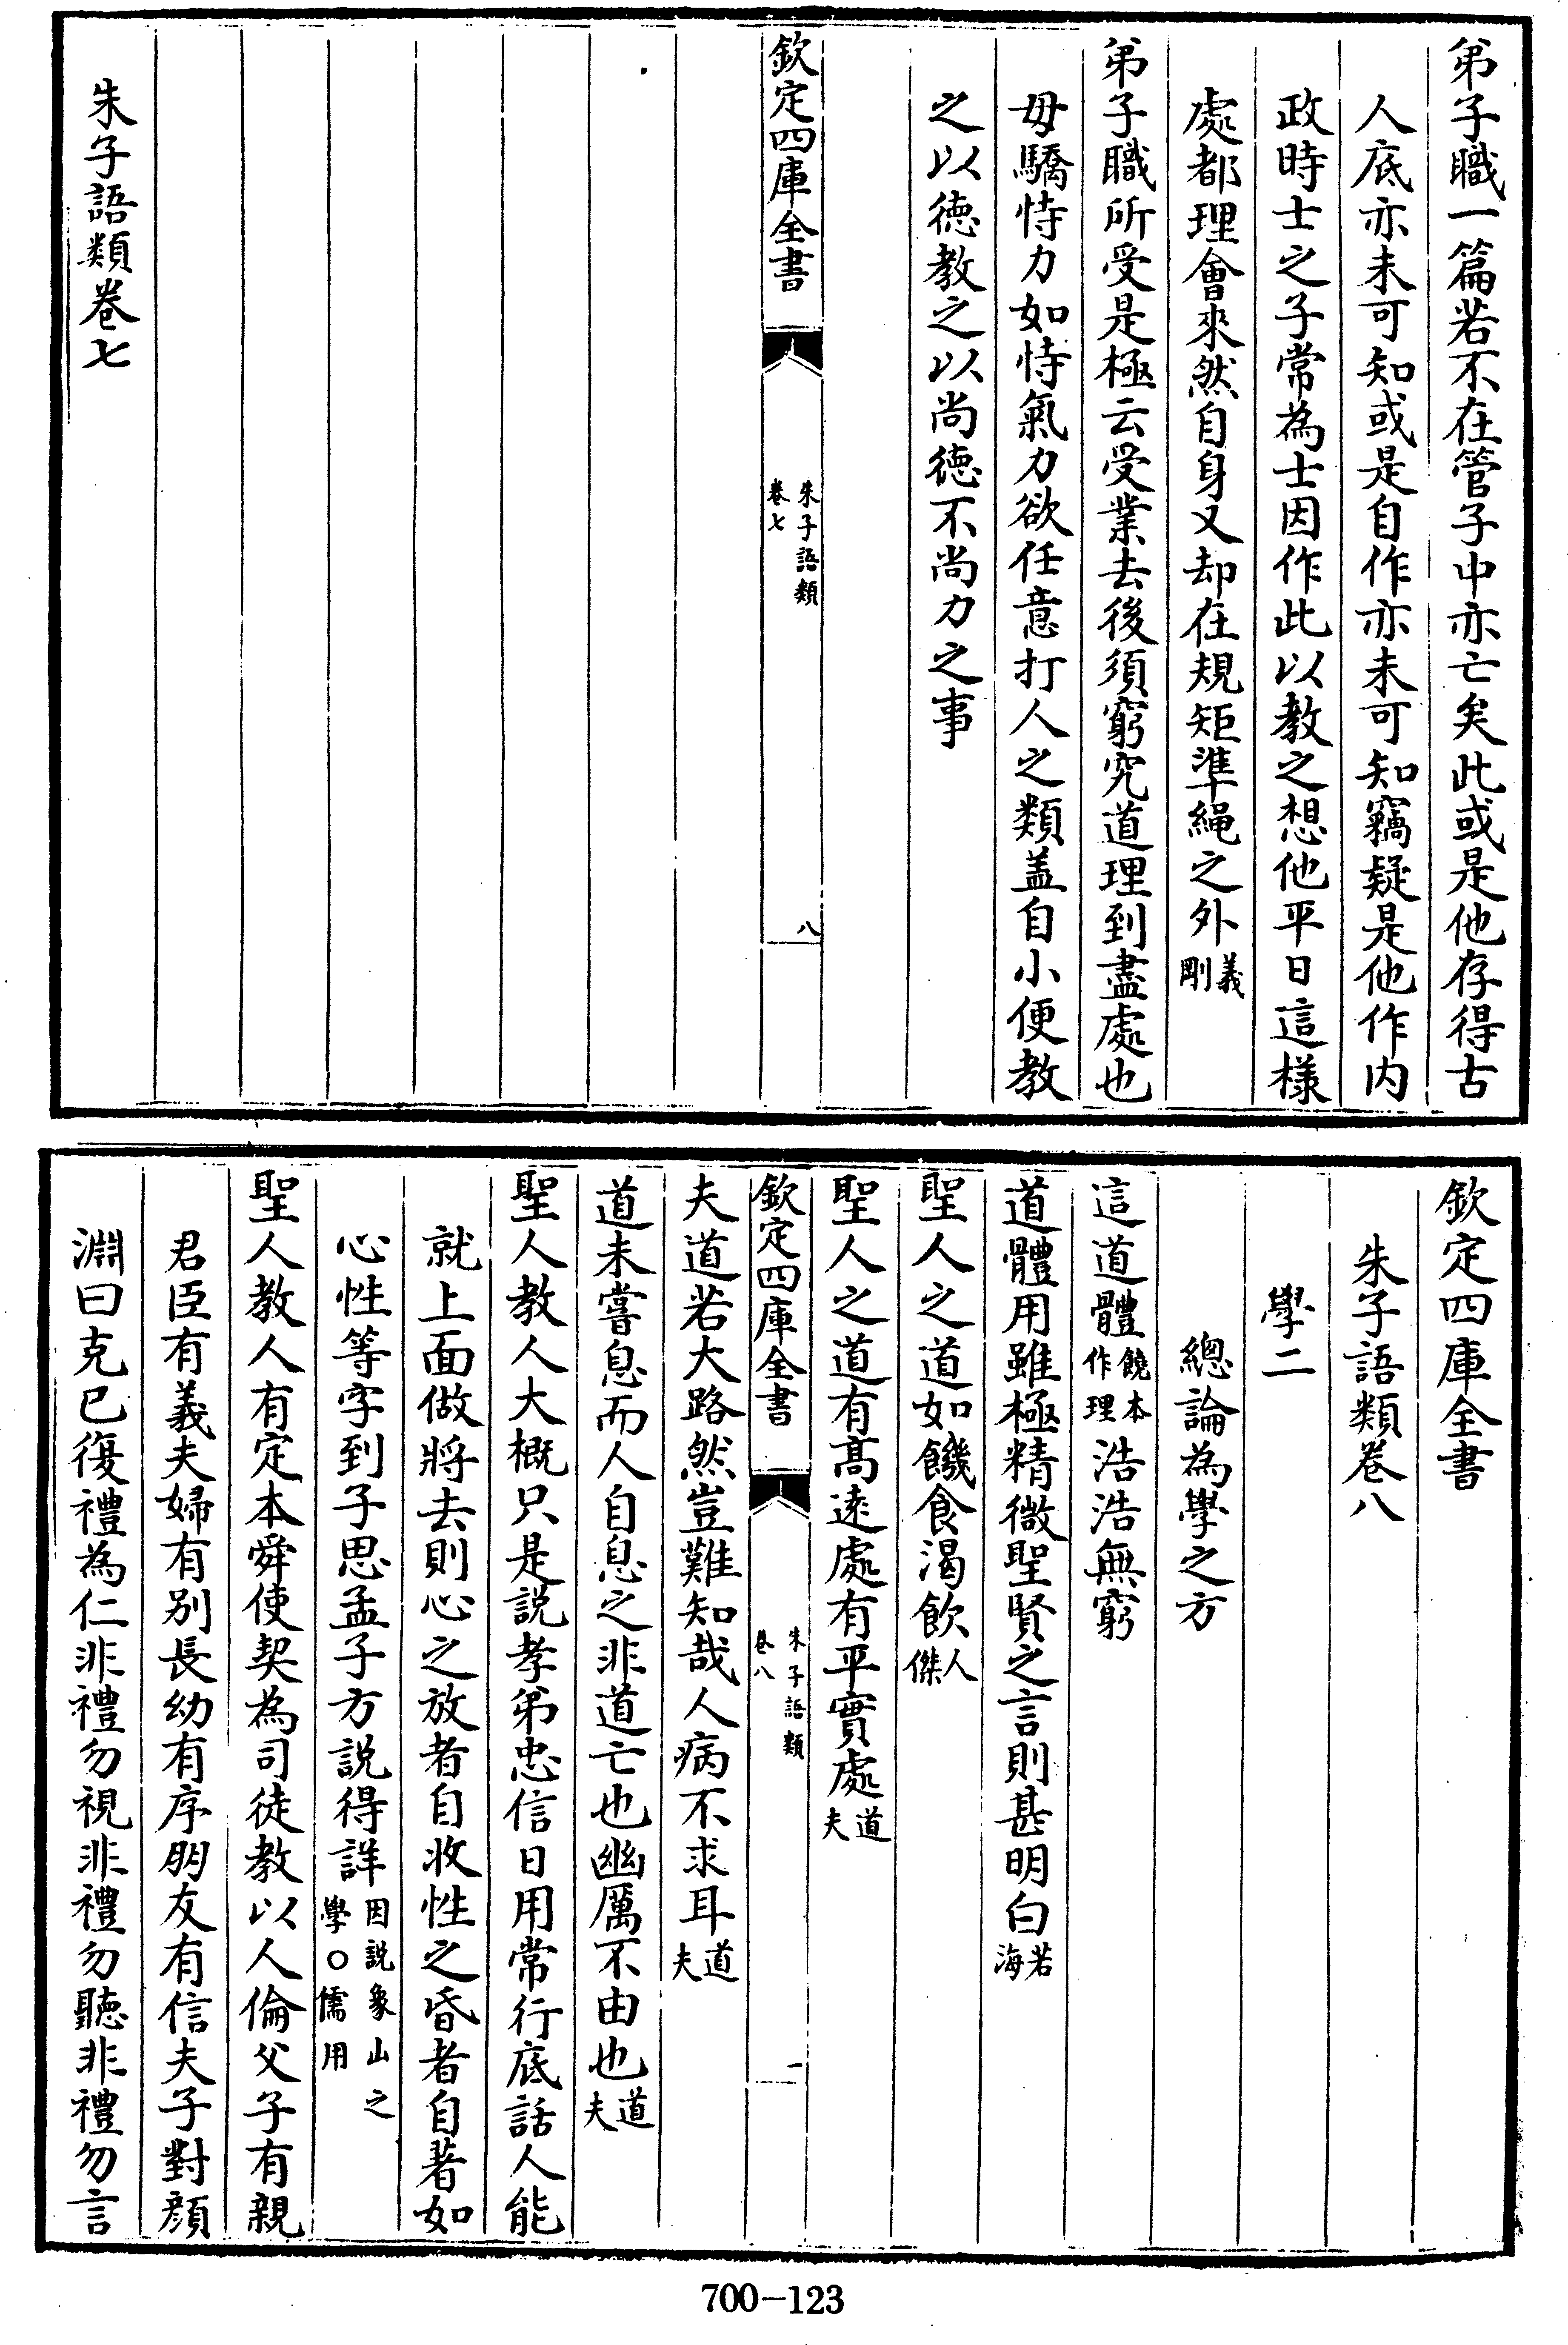 弟子職一篇若不在管子中亦亡矣此或是他存得古
人底亦未可知或是自作亦未可知竊疑是他作内
政時士之子常為士因作此以教之想他平日這様
處都理會來然自身又却在規矩準繩之外義剛
弟子職所受是極云受業去後須窮究道理到盡處也
毋驕恃力如恃氣力欲任意打人之類盖自小便教
之以徳教之以尚徳不尚力之事
欽定四庫全書
朱子語類
卷七
八
朱子語類卷七
欽定四庫全書
朱子語類卷八
學二
總論為學之方
這道體饒本作理浩浩無窮
道體用雖極精微聖賢之言則甚明白若海
聖人之道如饑食渴飲人傑
聖人之道有髙逺處有平實處道夫
欽定四庫全書
朱子語類
卷八
一
夫道若大路然豈難知哉人病不求耳道夫
道未嘗息而人自息之非道亡也幽厲不由也道夫
聖人教人大概只是説孝弟忠信日用常行底話人能
就上面做將去則心之放者自收性之昏者自著如
心性等字到子思孟子方説得詳因説象山之學○儒用
聖人教人有定本舜使契為司徒教以人倫父子有親
君臣有義夫婦有别長幼有序朋友有信夫子對顔
淵曰克已復禮為仁非禮勿視非禮勿聽非禮勿言
700-123